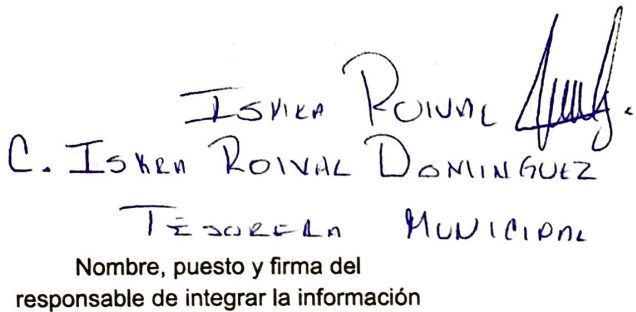 Iskra Roival
C. Iskra Roival Dominguez
Tesorera Municipal
Nombre, puesto y firma del
responsable de integrar la información